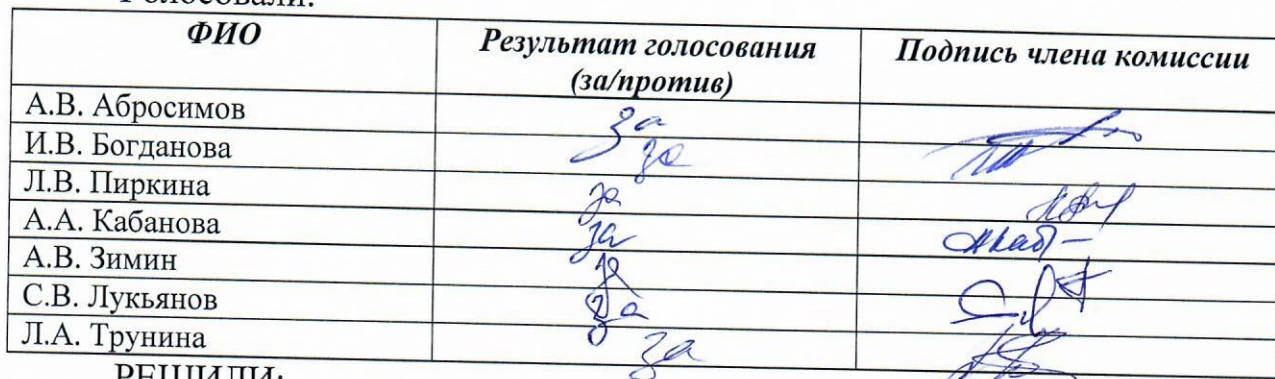 Голосовали:
ФИО Результат голосования (за/против) Подпись члена комиссии
А.В. Абросимов за
И.В. Богданова за
Л.В. Пиркина за
А.А. Кабанова за
А.В. Зимин за
С.В. Лукьянов за
Л.А. Трунина за
РЕШИЛИ: